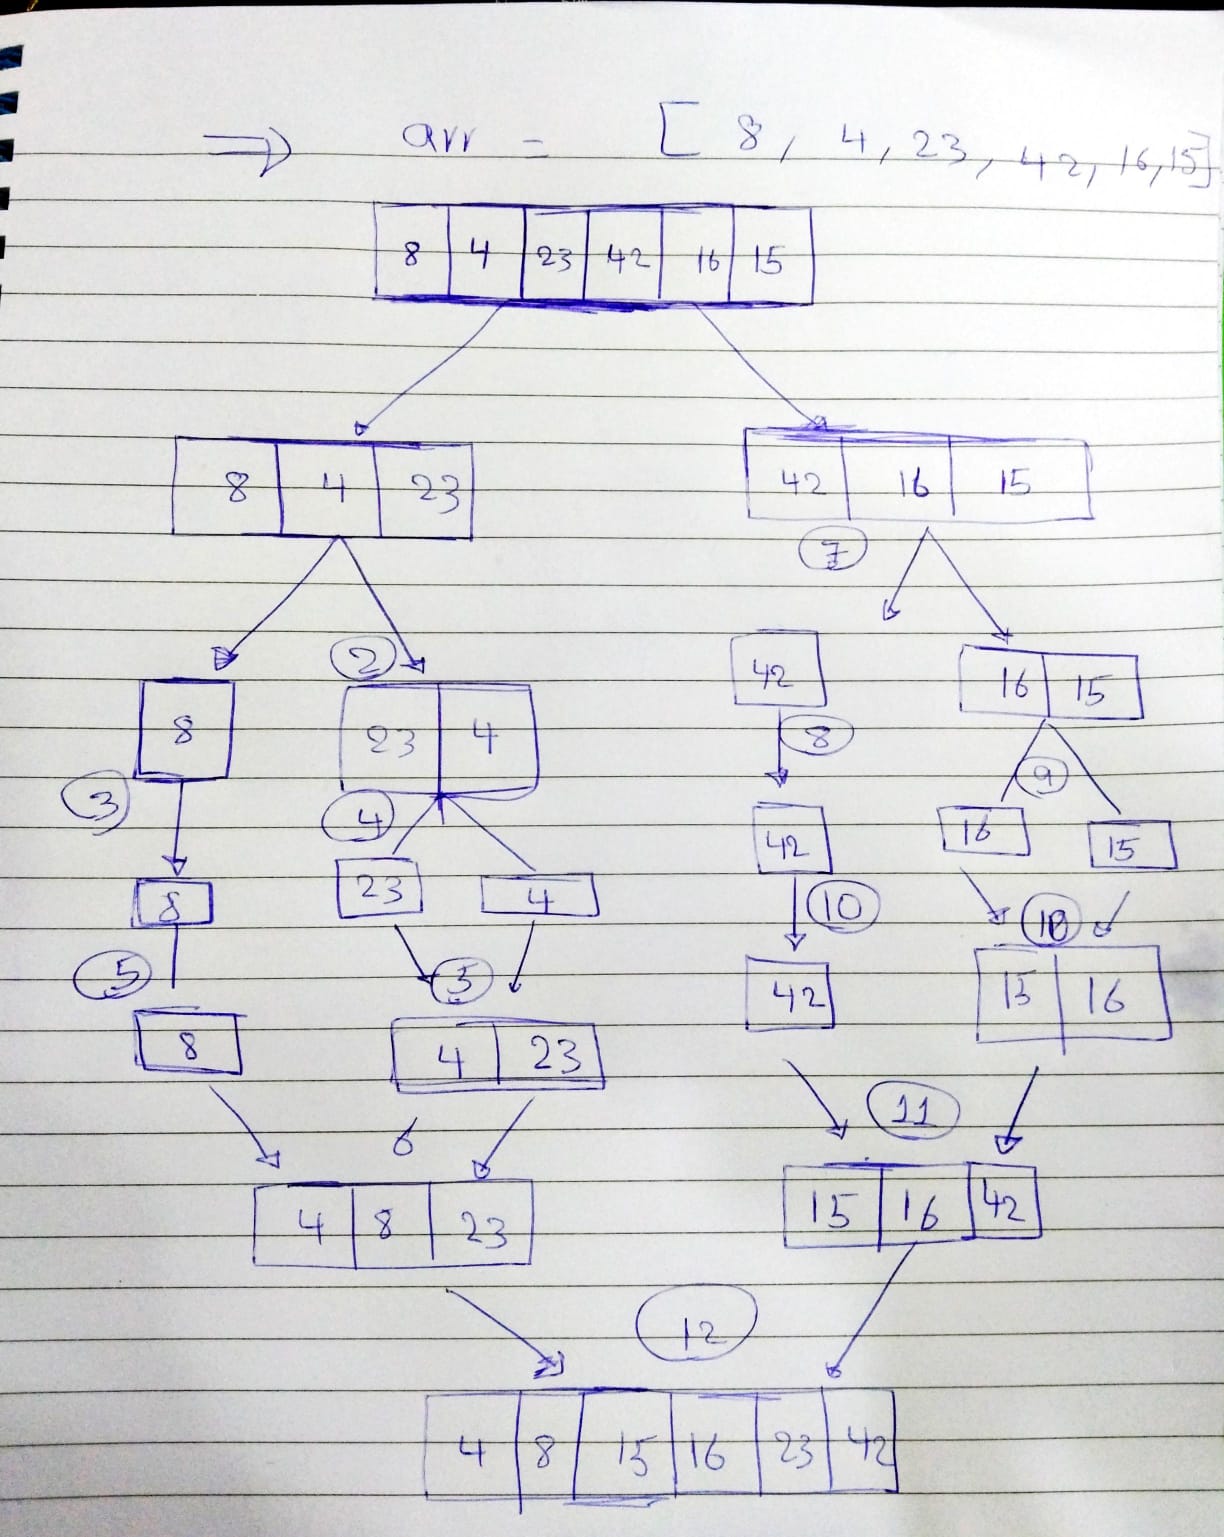 ⇒ arr = [ 8, 4, 23, 42, 16, 15]
8 4 23 42 16 15
8 4 23
42 16 15
7
2
8
23 4
42
16 15
3
4
8
9
8
23
4
42
16
15
5
5
10
10
8
4 23
42
15 16
6
11
4 8 23
15 16 42
12
4 8 15 16 23 42